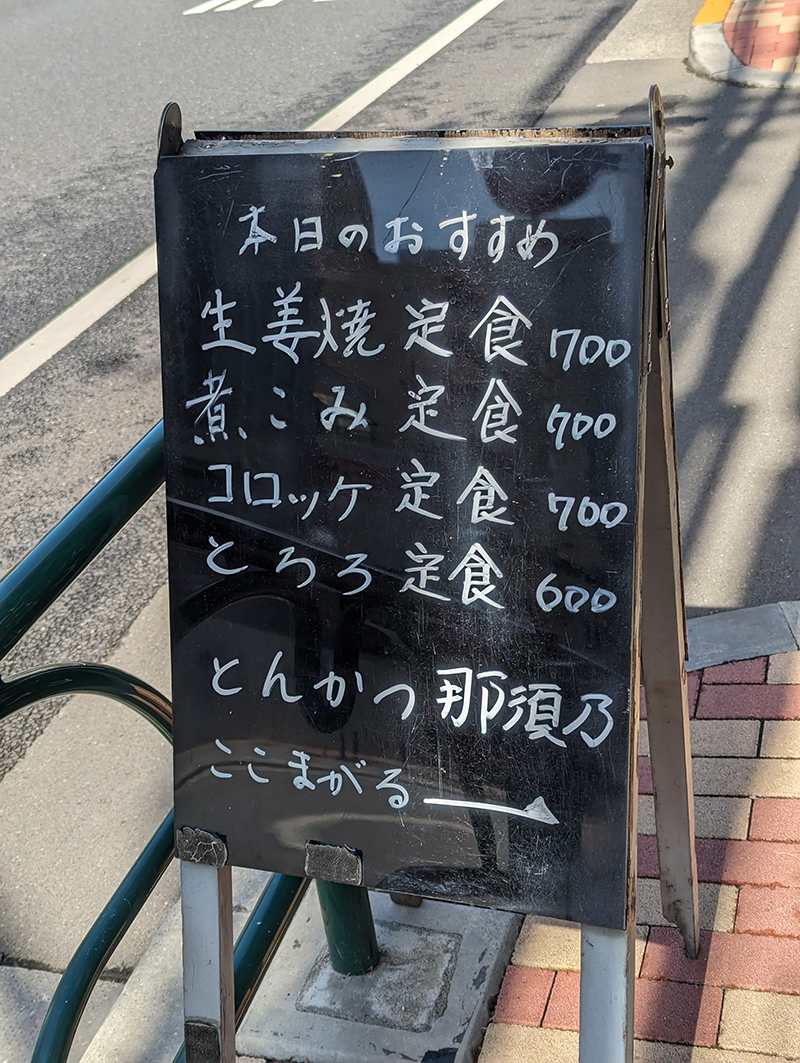 本日のおすすめ
生姜焼定食 700
煮こみ定食 700
コロッケ定食 700
とろろ定食 600
とんかつ那須乃
ここまがる→